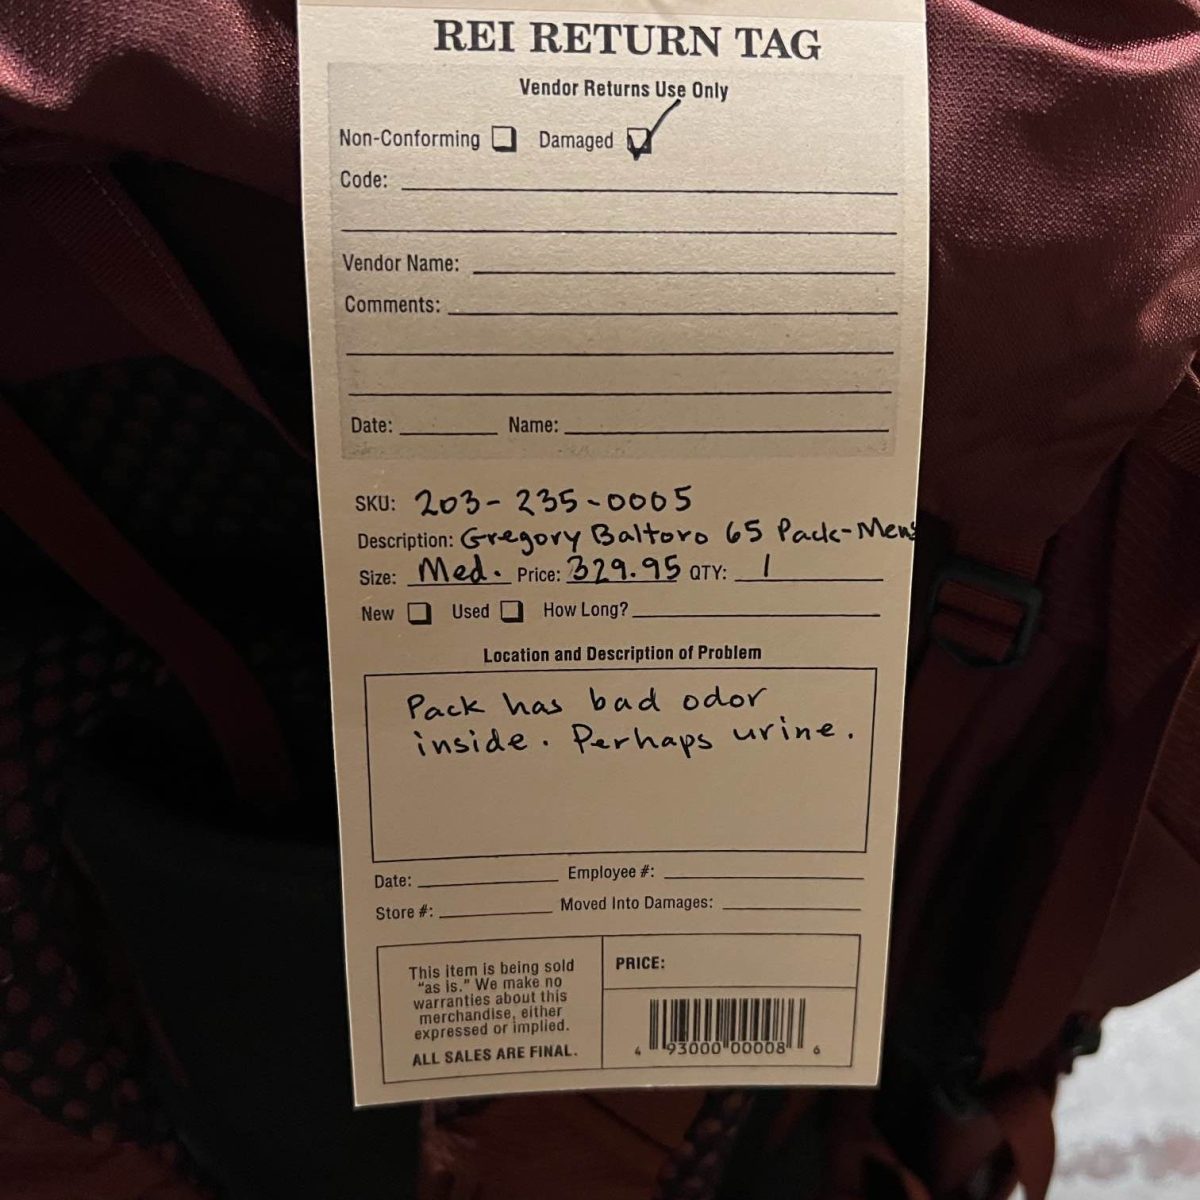 REI RETURN TAG
Vendor Returns Use Only
Non-Conforming Damaged
Code:
Vendor Name:
Comments:
Date: Name:
SKU: 203-235-0005
Description: Gregory Baltoro 65 Pack-Mens
Size: Med. Price: 329.95 QTY: 1
New Used How Long?
Location and Description of Problem
Pack has bad odor
inside. Perhaps urine.
Date: Employee #:
Store #: Moved Into Damages:
This item is being sold
"as is." We make no
warranties about this
merchandise, either
expressed or implied.
ALL SALES ARE FINAL.
PRICE:
4 93000 00008 6